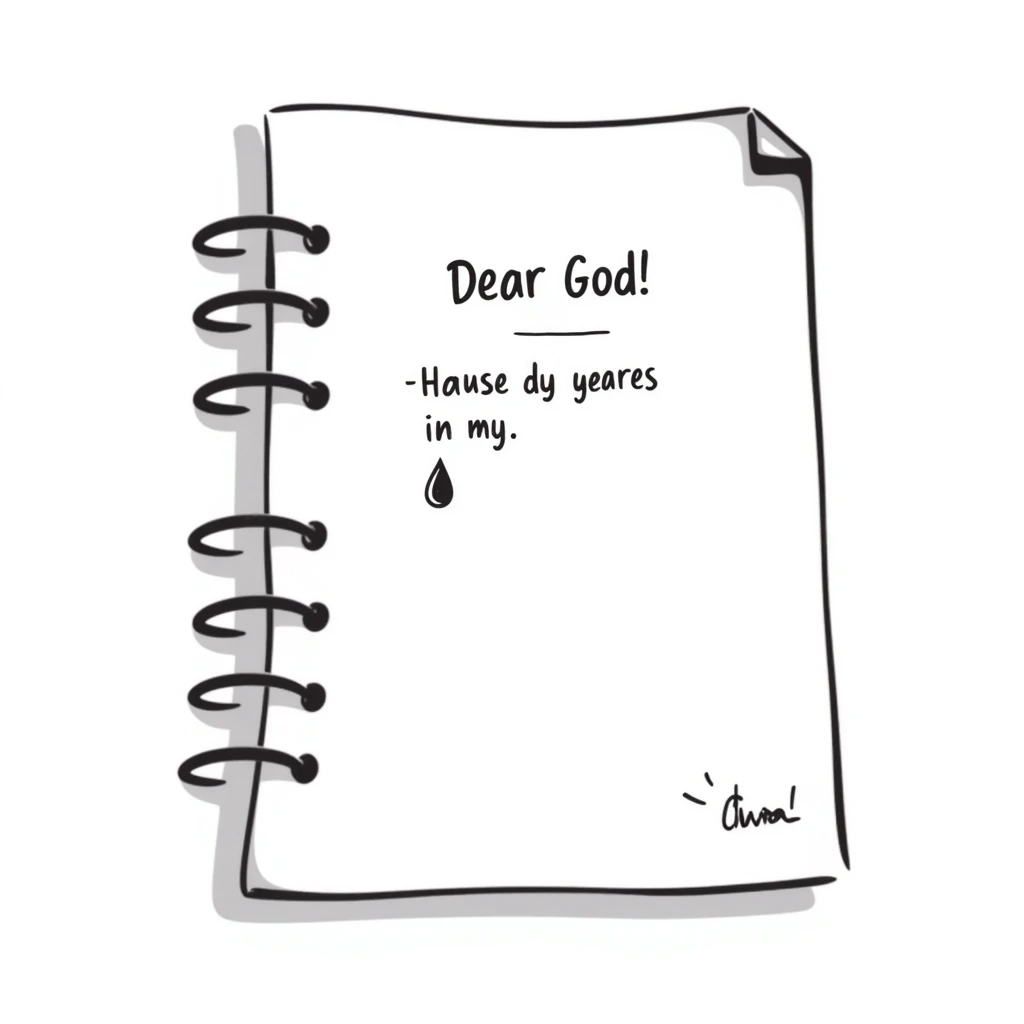 Dear God!
-Hause dy yeares
in my.